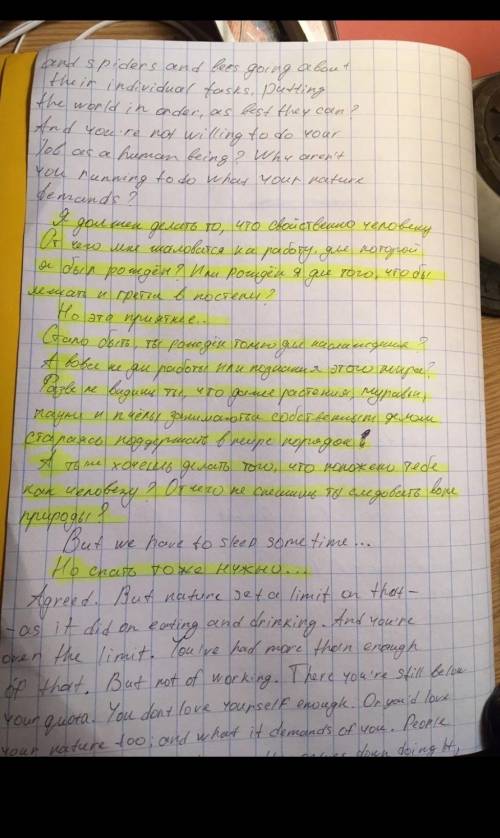 and spiders and bees going about
their individual tasks, putting
the world in order, as best they can?
And you're not willing to do your
Job as a human being? Why aren't
you running to do what your nature
demands?
Я должен делать то, что свойственно человеку
От чего мне жаловатся на работу, для которой
я был рождён? Или рождён я для того, что бы
лежать и грется в постели?
Но это приятнее..
Стало быть, ты рождён только для наслаждения?
А вовсе не для работы или познания этого мира?
Разве не видишь ты, что даже растения, муравьи,
пауки и пчёлы занимаются собственным делом
стараясь поддержать в мире порядок!
А ты не хочешь делать того, что положено тебе
как человеку? От чего не спешишь ты следовать воле
природы?
But we have to sleep sometime...
Но спать тоже нужно...
Agreed. But nature set a limit on that-
-as it did on eating and drinking. And you're
over the limit. You've had more than enough
of that. But not of working. There you're still below
your quota. You dont love yourself enough. Or you'd love
your nature too; and what it demands of you. People
down doing it,